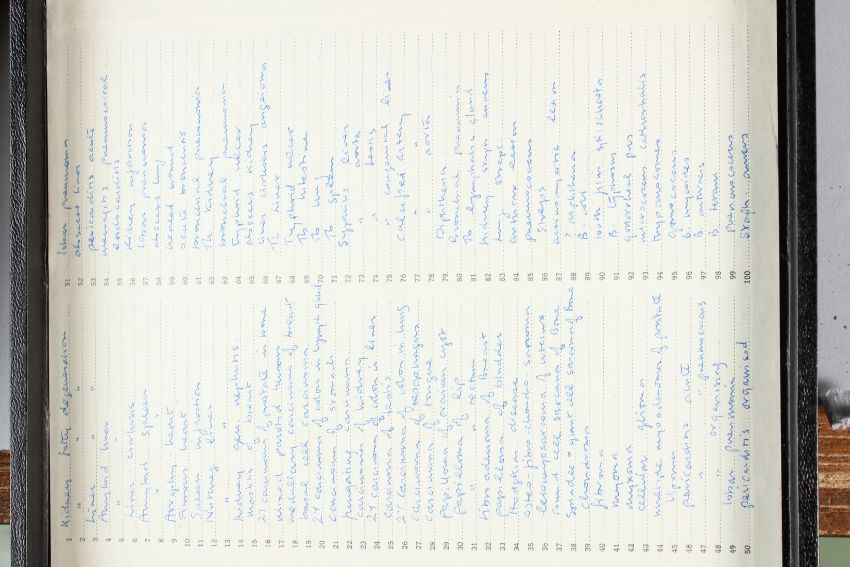 1 Kidney fatty degeneration
2 " " "
3 Liver " "
4 Amyloid liver
5 " "
6 Liver cirrhosis
7 Amyloid Spleen
8 " "
9 Atrophy heart
10 Fibrous heart
11 Spleen infarction
12 Nutmeg liver
13 " "
14 Kidney nephritis
15 mastitis of breast
16 27 carcinoma of prostate in bone
17 mixed parotid tumour
18 medullary carcinoma of breast
19 basal cell carcinoma
20 24 carcinoma of colon in lymph gland
21 carcinoma of stomach
22 carcinoma
23 carcinoma of kidney
24 24 carcinoma of colon in liver
25 Carcinoma of testis
26 24 Carcinoma of colon in lung
27 Carcinoma of oesophagus
28 Carcinoma of tongue
29 Papilloma of ovarian cyst
30 Papilloma of lip
31 " " rectum
32 Fibro adenoma of Breast
33 papilloma of bladder
34 Hodgkin disease
35 osteo chondro sarcoma
36 leiomyosarcoma of uterus
37 round cell sarcoma of Bone
38 Spindle & giant cell sarcoma of bone
39 chondroma
40 fibroma
41 myoma
42 myxoma
43 cellular glioma
44 of prostate
45 lipoma
46 pericarditis acute
47 " " pneumococcus
48 " organising
49 lobar pneumonia
50 pericarditis organised
51 lobar pneumonia
52 abscess liver
53 pericarditis acute
54 meningitis pneumococcal
55 endocarditis
56 Kidney infarction
57 lobar pneumonia
58 abscess lung
59 healed wound
60 acute bronchitis
61 bronchial pneumonia
62 Tb Kidney
63 bronchial pneumonia
64 Typhoid ulcer
65 abscess kidney
66 liver cirrhosis angeioma
67 Tb liver
68 Typhoid ulcer
69 Tb intestine
70 Tb lung
71 Tb spleen
72 Syphilis liver
73 " aorta
74 " testis
75 " congenital liver
76 Calcified artery
77 " "
78 " aorta
79 Diphtheria
80 Bronchial pneumonia
81 Tb lymphatic gland
82 Kidney staph aureus
83 lung staph
84 anthrax
85 pneumococcus
86 Staph
87 actinomycotic lesion
88 diphtheria
89 B coli
90 tooth film spirochaeta
91 B typhosus
92 gonorrheal pus
93 micrococcus catarrhalis
94 trypanosomes
95 gonococcus
96 B mycoides
97 B anthracis
98 B tetani
99 pneumococcus
100 Staph aureus